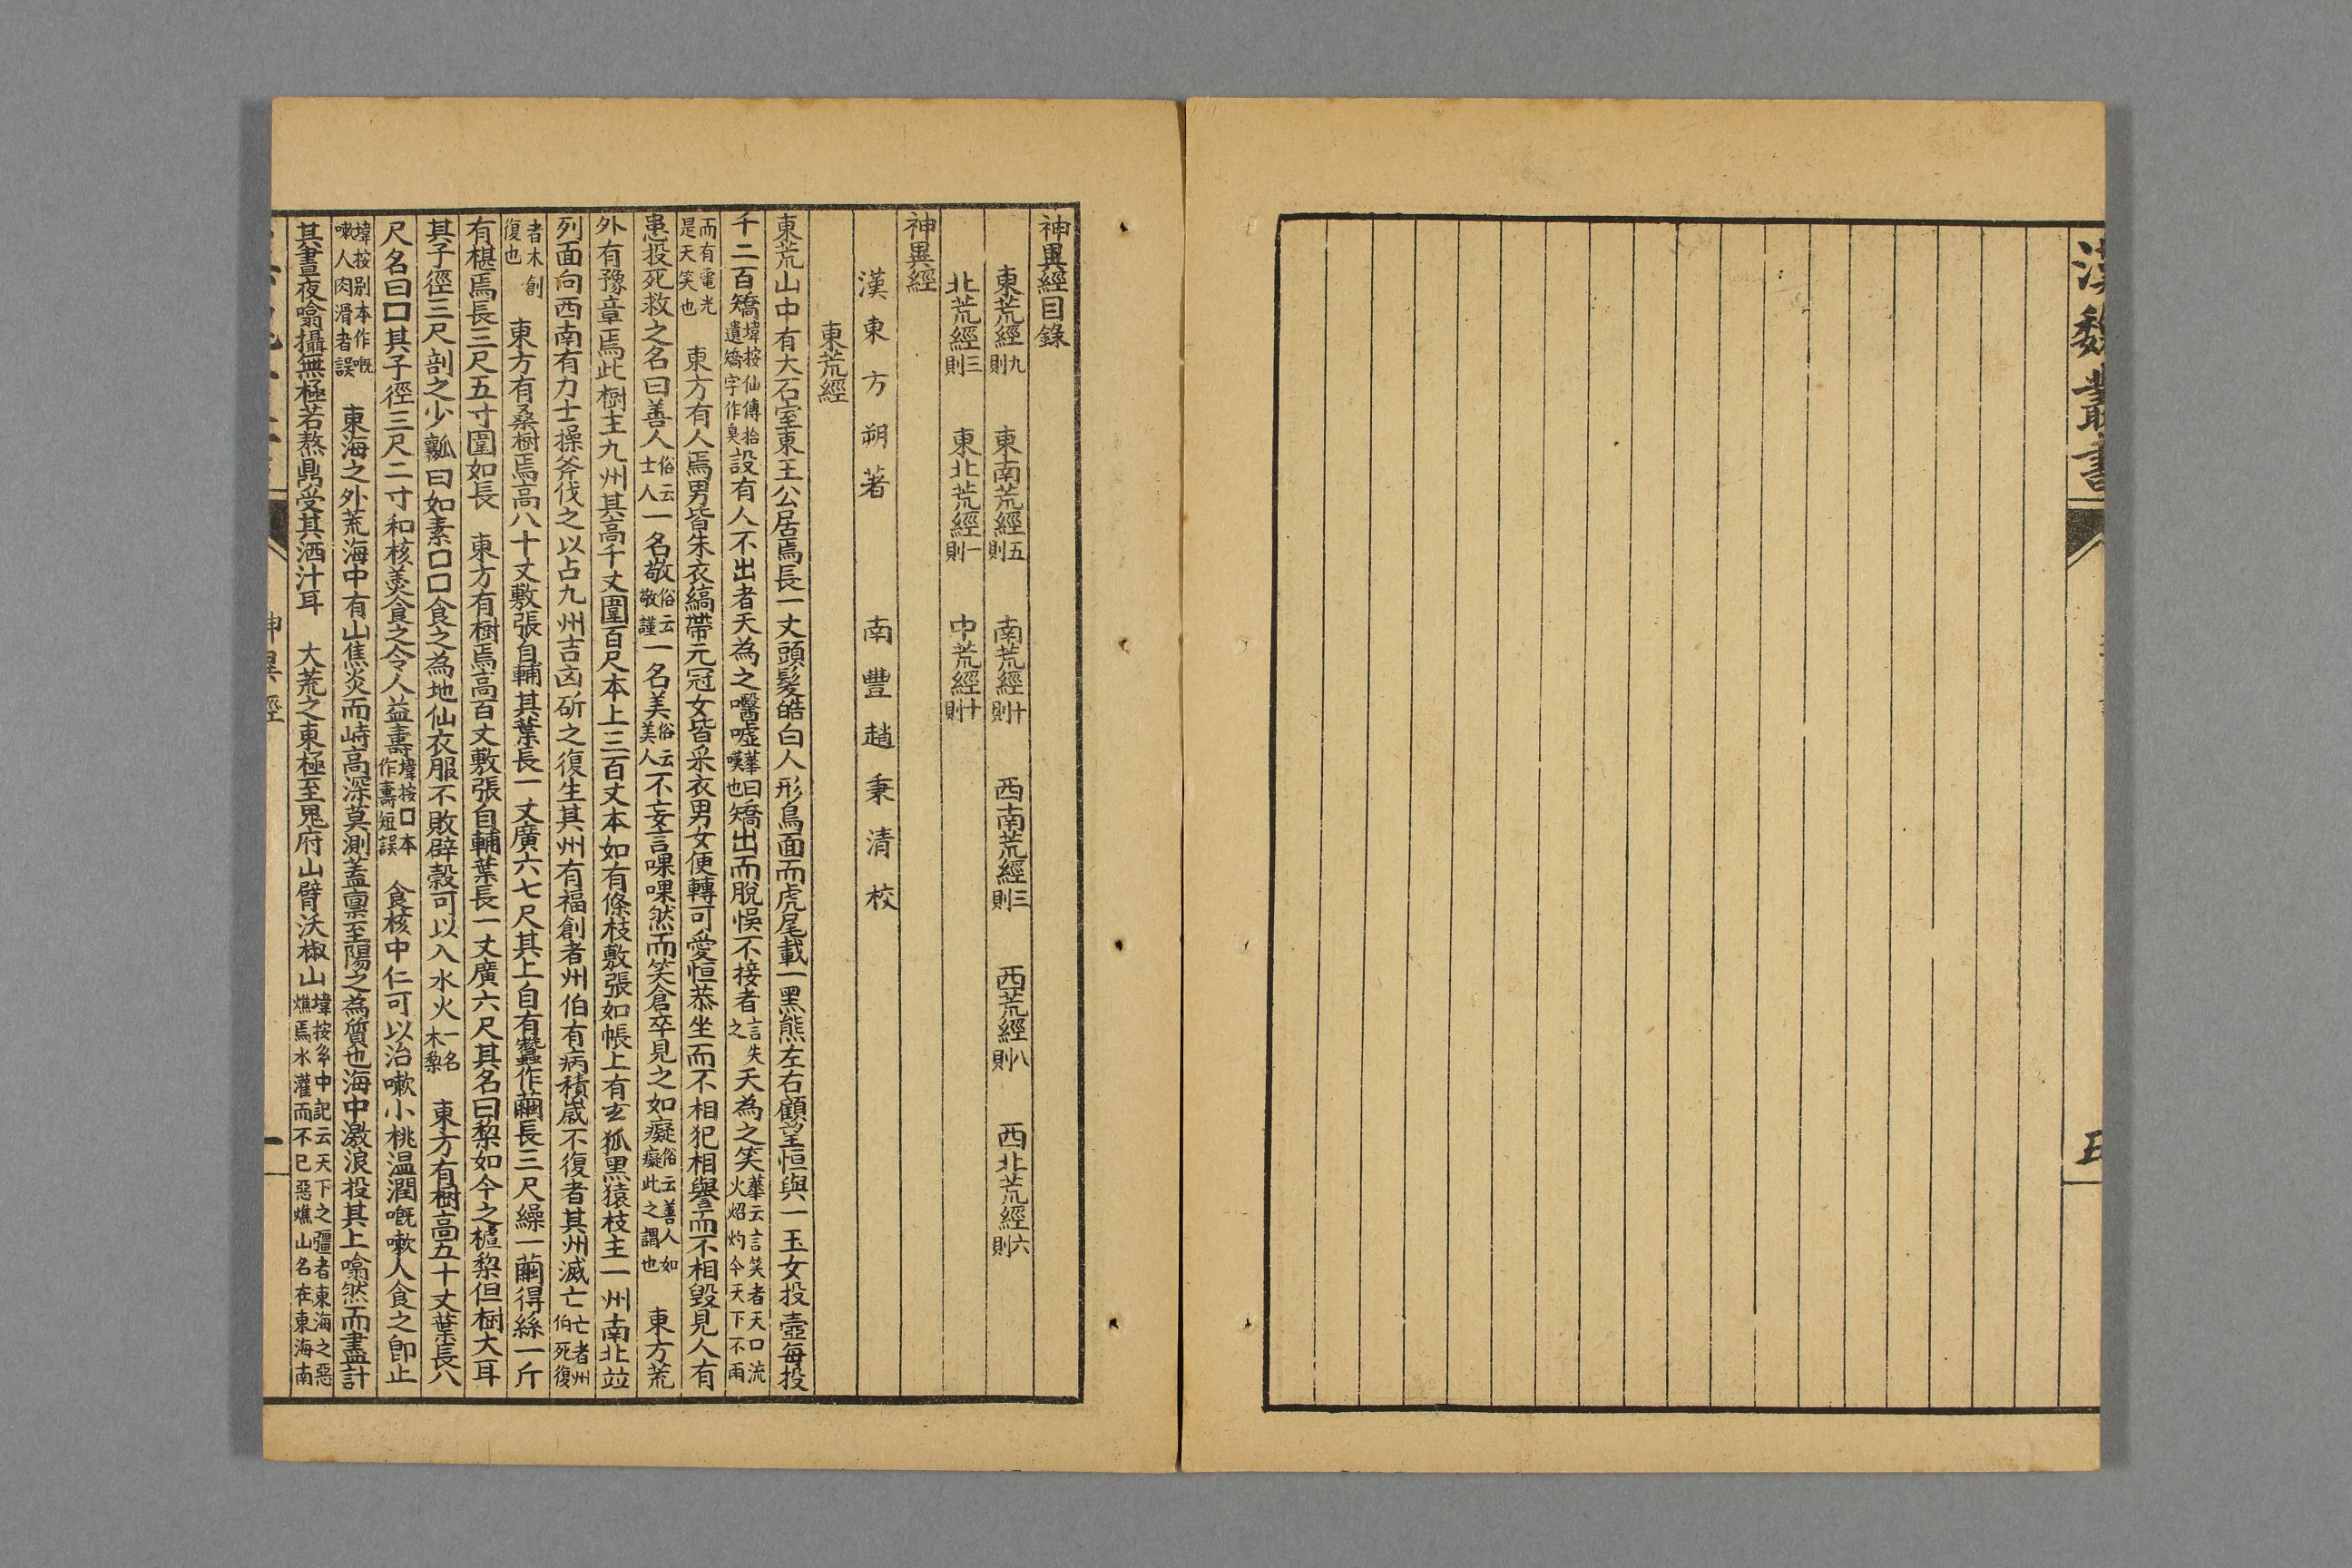 漢魏叢書
神異經目錄
東荒經九則 東南荒經五則 南荒經十則 西南荒經三則 西荒經八則 西北荒經六則
北荒經三則 東北荒經一則 中荒經十則
神異經
漢東方朔著 南豐趙秉清校
東荒經
東荒山中有大石室東王公居焉長一丈頭髮皓白人形鳥面而虎尾載一黑熊左右顧望恒與一玉女投壺每投
千二百矯墇按仙傳拾遺矯字作臭設有人不出者天為之噓華曰嘆也矯出而脫悞不接者言失之天為之笑華云言笑者天口流火炤灼今天下不雨
而有電光是天笑也 東方有人焉男皆朱衣縞帶元冠女皆采衣男女便轉可愛恒恭坐而不相犯相譽而不相毀見人有
患投死救之名曰善人俗云士人一名敬俗云敬謹一名美俗云美人不妄言㗖㗖然而笑倉卒見之如癡俗云善人如癡此之謂也 東方荒
外有豫章焉此樹主九州其高千丈圍百尺本上三百丈本如有條枝敷張如帳上有玄狐黑猿枝主一州南北竝
列面向西南有力士操斧伐之以占九州吉凶斫之復生其州有福創者州伯有病積歲不復者其州滅亡亡者州伯死復
者木創復也 東方有桑樹焉高八十丈敷張自輔其葉長一丈廣六七尺其上自有蠶作繭長三尺繰一繭得絲一斤
有椹焉長三尺五寸圍如長 東方有樹焉高百丈敷張自輔葉長一丈廣六尺其名曰棃如今之樝棃但樹大耳
其子徑三尺剖之少瓤曰如素口口食之為地仙衣服不敗辟穀可以入水火一名木棃 東方有樹高五十丈葉長八
尺名曰口其子徑三尺二寸和核羹食之令人益壽墇按口本作壽短誤 食核中仁可以治嗽小桃温潤嘅嗽人食之卽止
墇按别本作嘅嗽人肉滑者誤 東海之外荒海中有山焦炎而峙高深莫測蓋禀至陽之為質也海中激浪投其上噏然而盡計
其晝夜噏攝無極若熬鼎受其洒汁耳 大荒之東極至鬼府山臂沃椒山墇按多中記云天下之彊者東海之惡燋焉水灌而不已惡燋山名在東海南
神異經
一